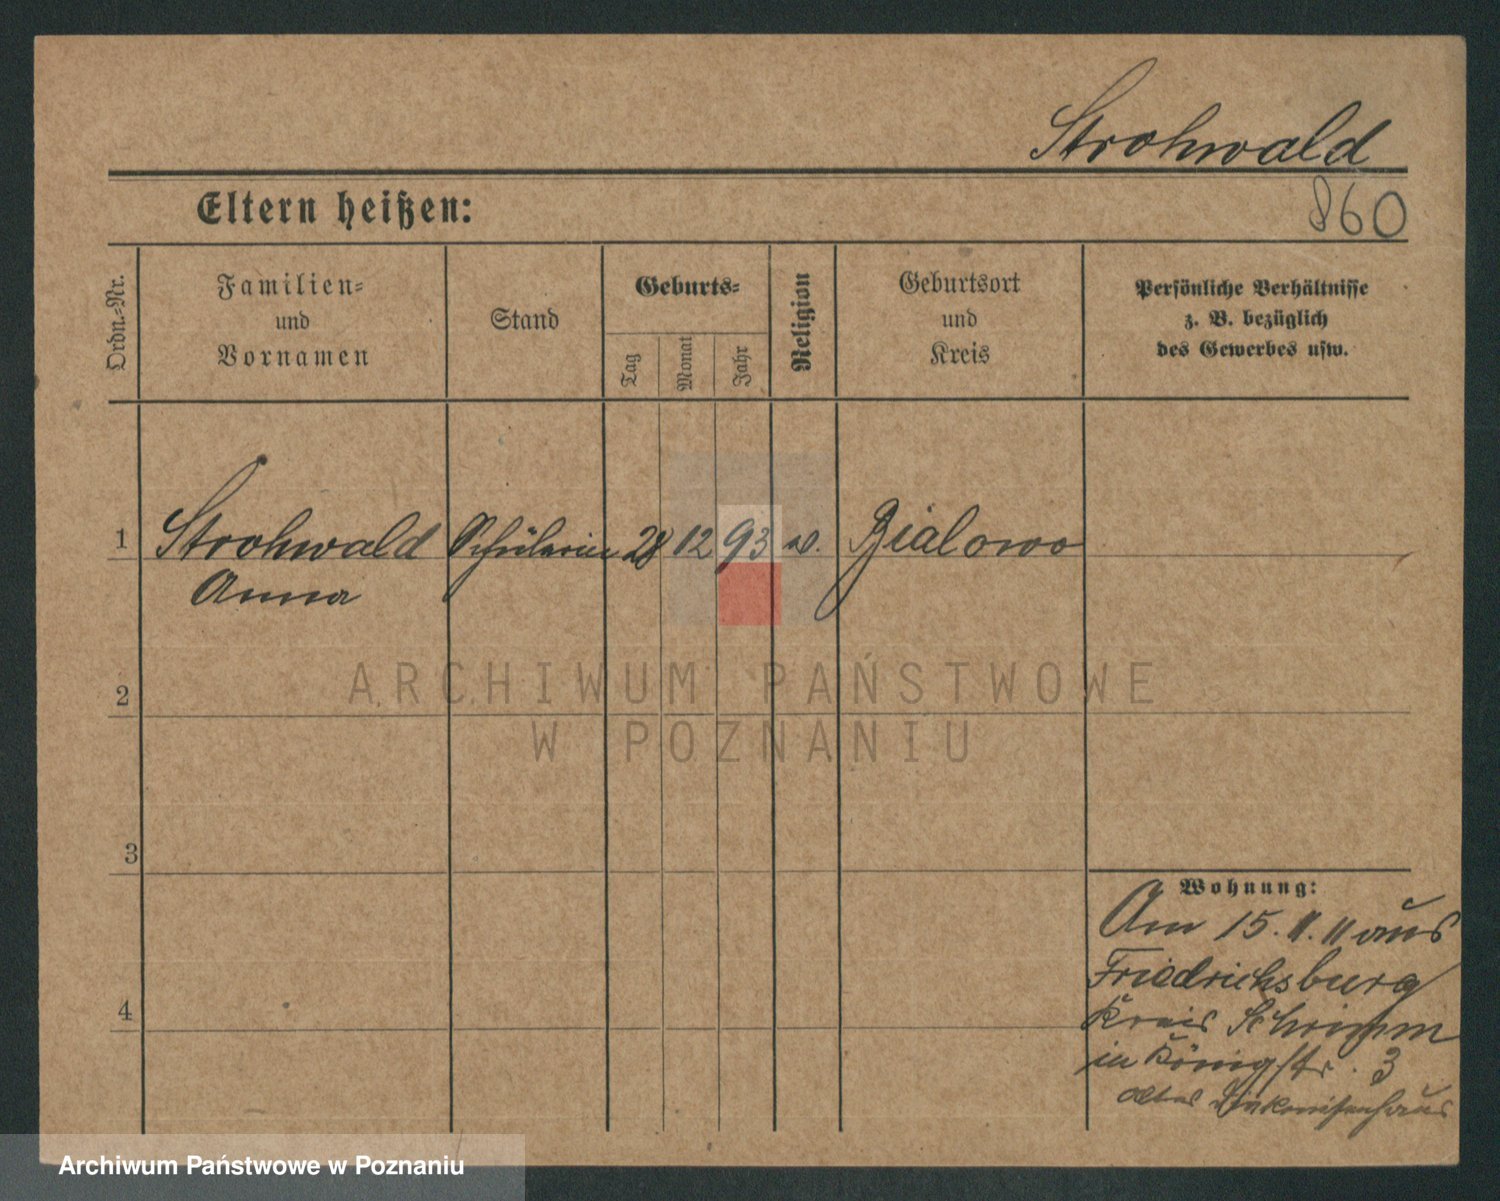 Strohwald
Eltern heißen:
860
Ordn.-Nr.
Familien-
und
Vornamen
Stand
Geburts-
Tag
Monat
Jahr
Religion
Geburtsort
und
Kreis
Persönliche Verhältnisse
z. B. bezüglich
des Gewerbes usw.
1 Strohwald Schülerin 28 12 93 Bialowo
Anna
ARCHIWUM PAŃSTWOWE
W POZNANIU
2
3
4
Wohnung:
Am 15. II. 11 aus
Friedrichsburg
Kreis Schrimm
in Königstr. 3
altes Diakonissenhaus
Archiwum Państwowe w Poznaniu